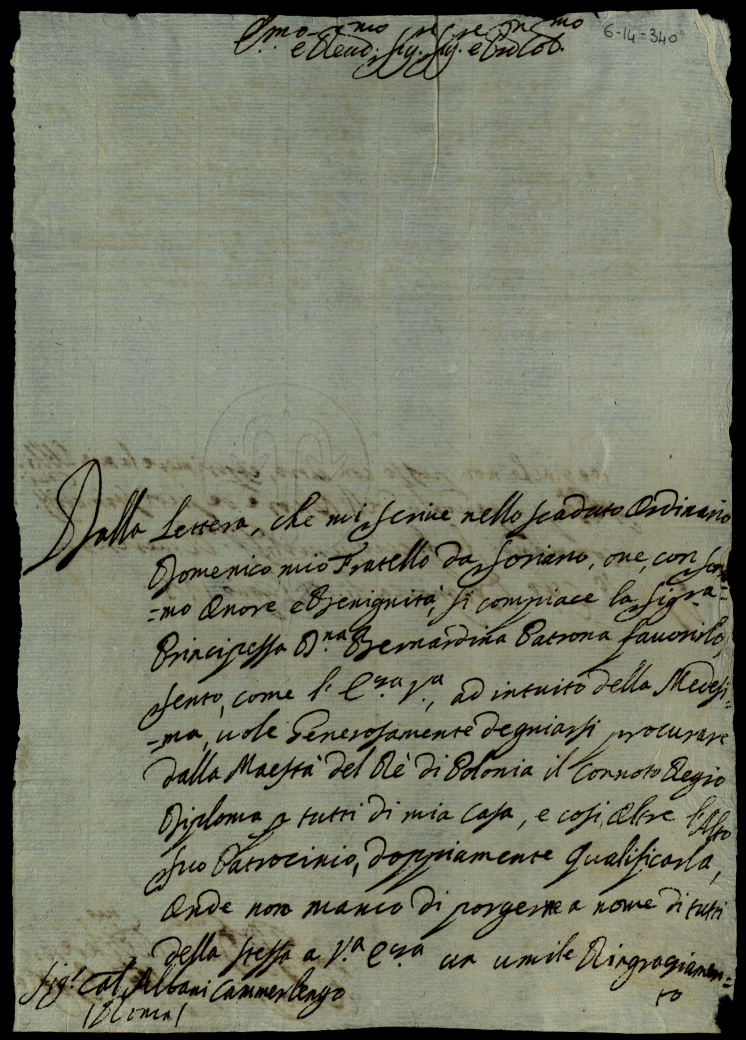 E.mo e R.mo Sig.re Sig.re P.rone
e Rev.d. Sig. Sig. e Prot. Col.
6-14-340
Dalla Lettera, che mi scrive nello scaduto Ordinario
Domenico mio Fratello da Soriano, ove, con som=
=mo Onore e Benignità si compiace la Sig.ra
Principessa D.na Bernardina Patrona favorirlo,
sento, come l'E.za V.a, ad intuito della Medesi=
=ma, vole Generosamente degniarsi procurare
dalla Maestà del Rè di Polonia il Connoto Regio
Diploma a tutti di mia Casa, e così, Oltre l'Alto
suo Patrocinio, doppiamente Qualificarla,
Onde non manco di porgerne a nome di tutti
della stessa a V.a E.za un umile Ringraziamen=
to
Sig.r Card. Albani Cammerlengo
(Roma)